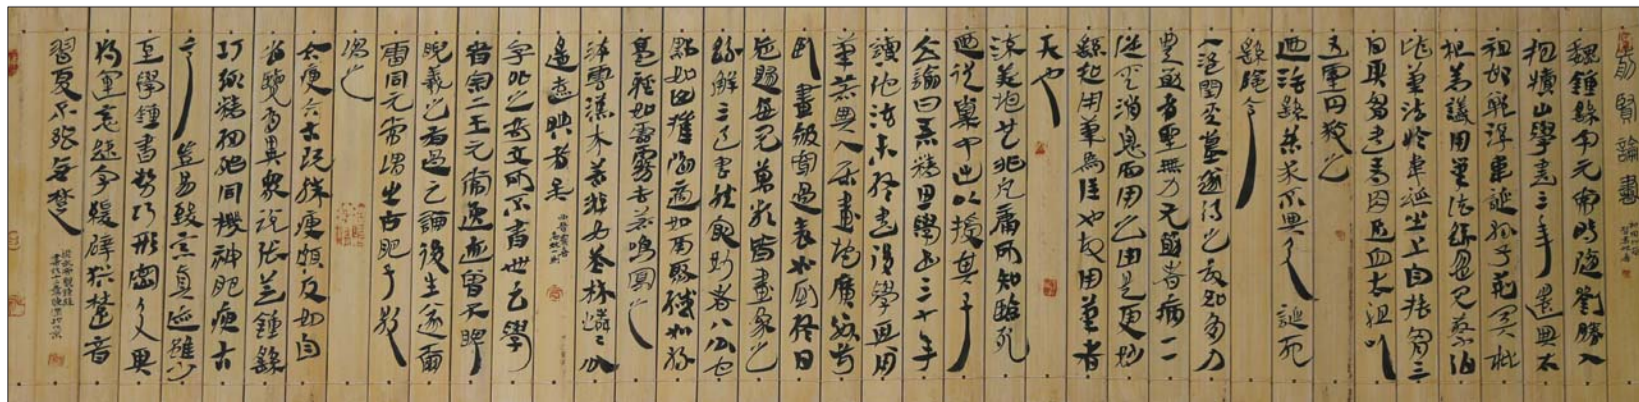 前賢論書
魏鍾繇字元常少時隨劉勝入
抱犢山學書三年還與太
祖邯鄲淳韋誕孫子荊関枇
杷等議用筆法繇忽見蔡伯
喈筆法於韋誕坐上自搥胸三
日其胸盡青因嘔血太祖以
五靈丹救之
迺活繇苦求不與及誕死
繇陰令
人盜開其墓遂得之故知多力
豐筋者聖無力無筋者病一一
從其消息而用之由是更妙
繇起用筆為佳也故用筆者
天也
流美地也非凡庸所知臨死
迺從囊中出以授其子
會諭曰吾精思學書三十年
讀他法未終盡後學其用
筆若與人居畫地廣數步
臥畫被穿過表如廁終日
忘歸每見萬類皆畫象之
繇解三色書然最妙者八分也
點如山摧陷摘如雨驟纖如絲
毫輕如雲霧去若鳴鳳之
游雲漢来若游女花林燦燦分
遙遙映者矣
字外之奇文所不書世之學
者宗二王元常逸跡曾不睥
睨羲之有過之論後生遂爾
雷同元常謂之古肥子敬
謂之
今瘦今古既殊瘦頗反如自
省覽有異衆說張芝鍾繇
巧趣精細殆同機神肥瘦古
今豈易致意真跡雖少
至學鍾書勢巧形密及其
將運意趣字緩譬猶楚音
習夏不能無楚